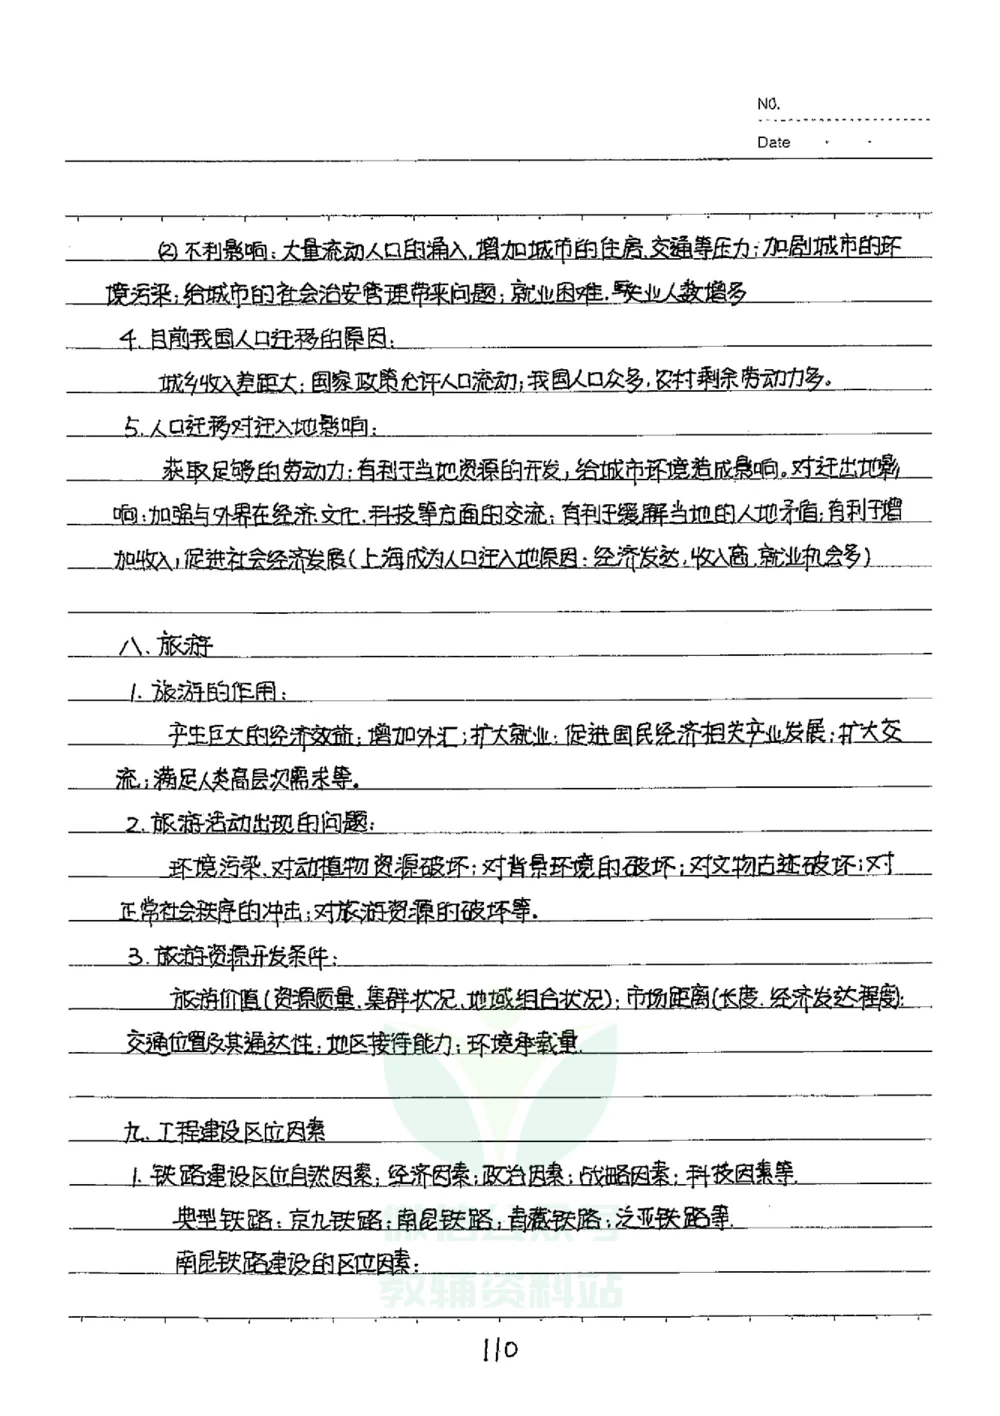 NO.
Date
(2) 不利影响：大量流动人口的涌入，增加城市的住房、交通等压力；加剧城市的环
境污染；给城市的社会治安管理带来问题；就业困难，失业人数增多
4. 目前我国人口迁移的原因：
城乡收入差距大；国家政策允许人口流动；我国人口众多，农村剩余劳动力多。
5. 人口迁移对迁入地影响：
获取足够的劳动力；有利于当地资源的开发；给城市环境造成影响。对迁出地影
响：加强与外界在经济、文化、科技等方面的交流；有利于缓解当地的人地矛盾；有利于增
加收入；促进社会经济发展（上海成为人口迁入地原因：经济发达，收入高，就业机会多）
八、旅游
1. 旅游的作用：
产生巨大的经济效益；增加外汇；扩大就业；促进国民经济相关产业发展；扩大交
流；满足人类高层次需求等。
2. 旅游活动出现的问题：
环境污染、对动植物资源破坏；对背景环境的破坏；对文物古迹破坏；对
正常社会秩序的冲击；对旅游资源的破坏等。
3. 旅游资源开发条件：
旅游价值（资源质量、集群状况、地域组合状况）；市场距离（长度、经济发达程度）；
交通位置及其通达性；地区接待能力；环境承载量.
九、工程建设区位因素
1. 铁路建设区位自然因素；经济因素；政治因素；战略因素；科技因素等.
典型铁路：京九铁路；南昆铁路；青藏铁路；泛亚铁路等.
南昆铁路建设的区位因素：
微信公众号
教辅资料站
110